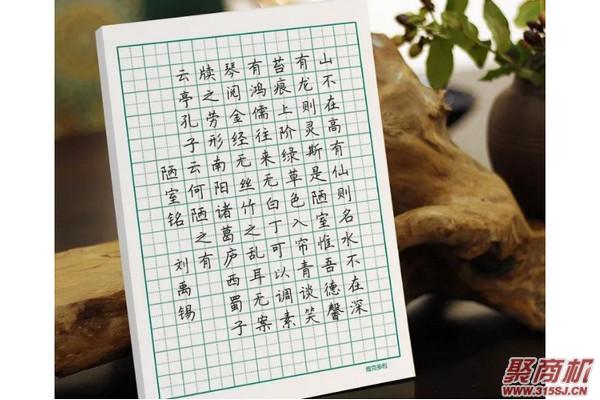 山不在高有仙则名水不在深
有龙则灵斯是陋室惟吾德馨
苔痕上阶绿草色入帘青谈笑
有鸿儒往来无白丁可以调素
琴阅金经无丝竹之乱耳无案
牍之劳形南阳诸葛庐西蜀子
云亭孔子云何陋之有
陋室铭 刘禹锡
维克多利
聚商机
WWW.315SJ.CN